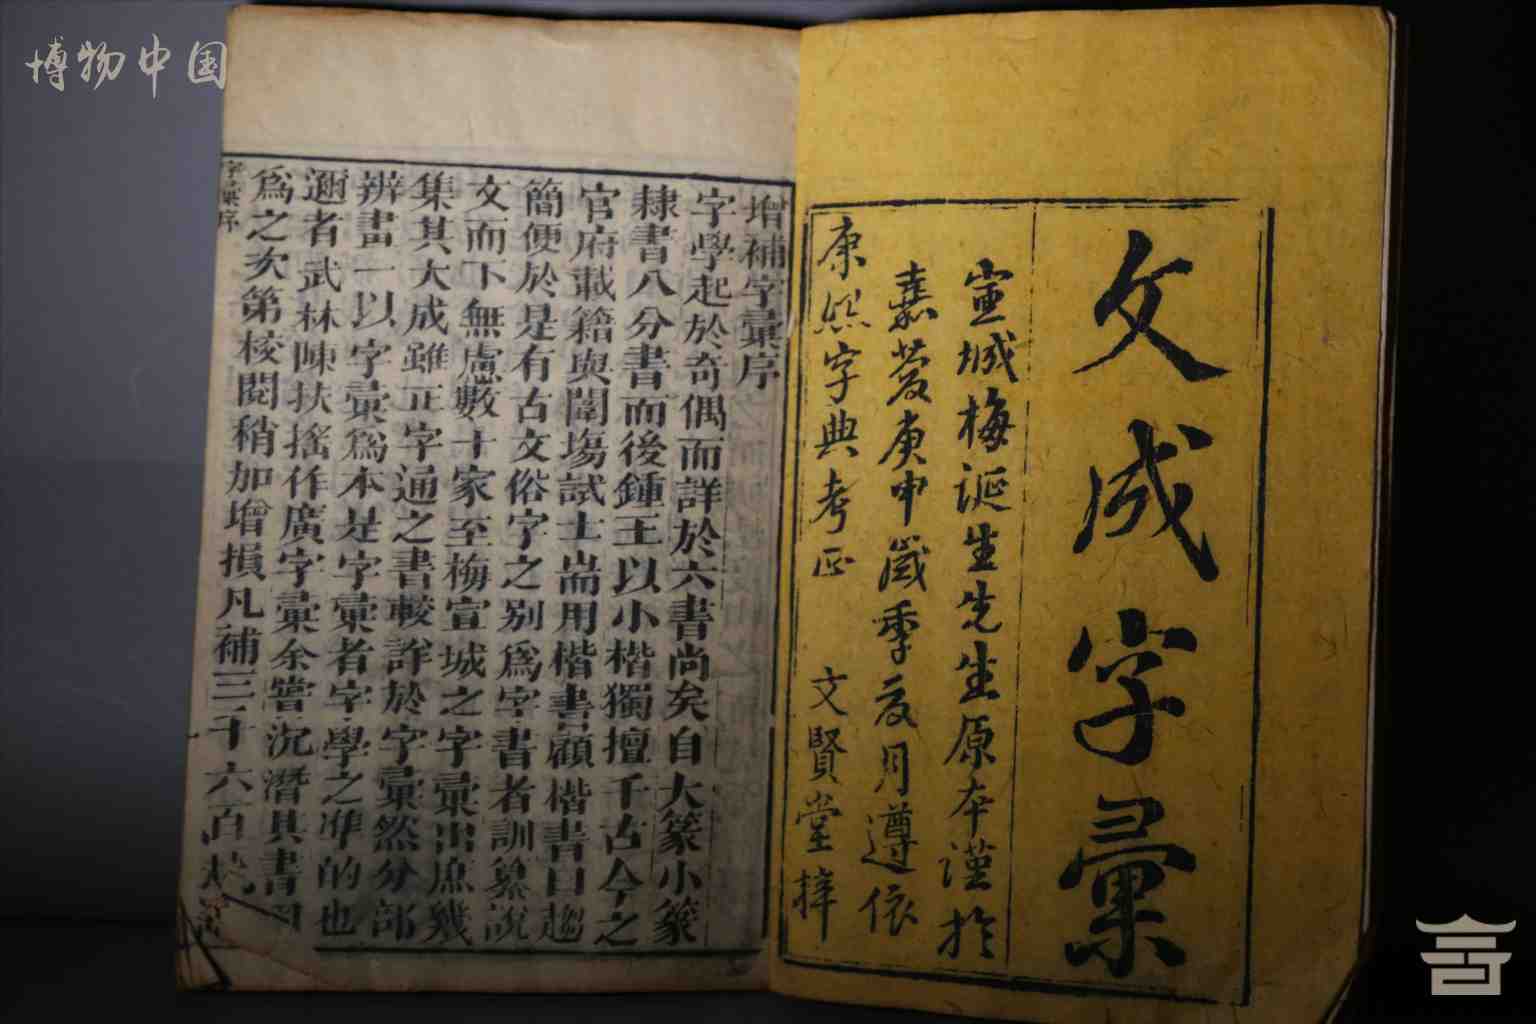 博物中国
文成字彙
宣城梅誕生先生原本謹於
嘉慶庚申歲季夏月遵依
康熙字典考正 文賢堂梓
增補字彙序
字學起於奇偶而詳於六書尚矣自大篆小篆
隸書八分書而後鍾王以小楷獨擅千古今之
官府載籍與闈場試士耑用楷書顧楷書曰趨
簡便於是有古文俗字之别爲字書者訓纂說
文而下無慮數十家至梅宣城之字彙出庶幾
集其大成雖正字通之書較詳於字彙然分部
辨畫一以字彙爲本是字彙者字學之準的也
邇者武林陳扶搖作廣字彙余嘗沉潛其書
爲之次第校閱稍加增損凡補三千六百
字彙序